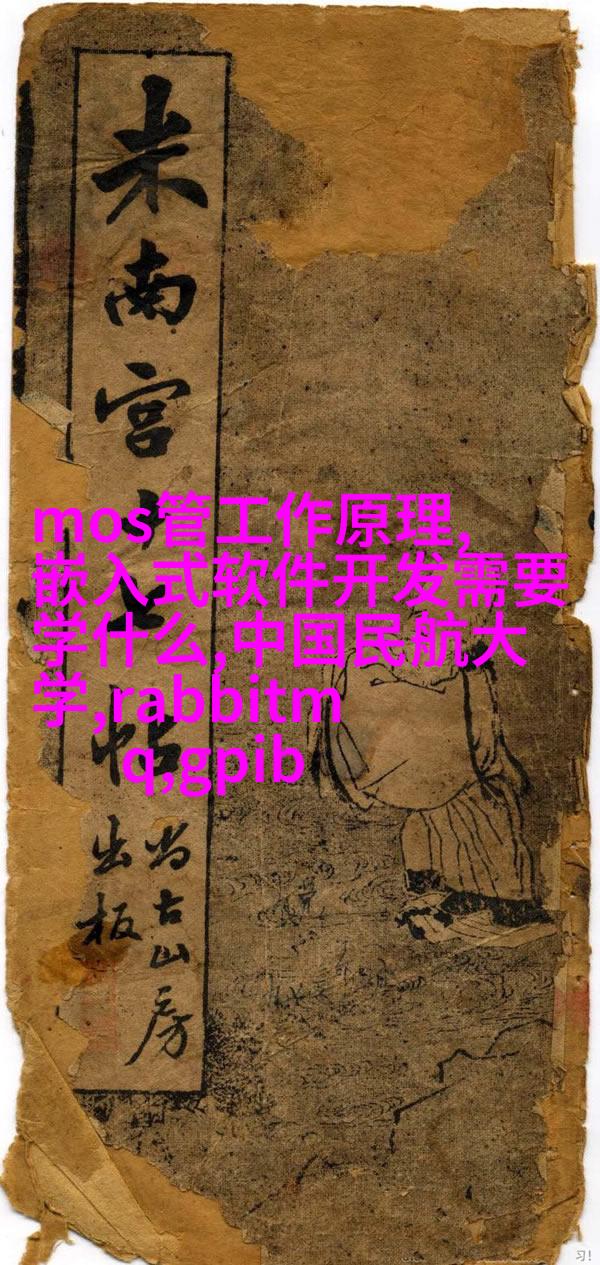 米南宫
帖
尚古山房
出板
mos管工作原理,
嵌入式软件开发需要
学什么,中国民航大
学,rabbitm
q,gpib
习!